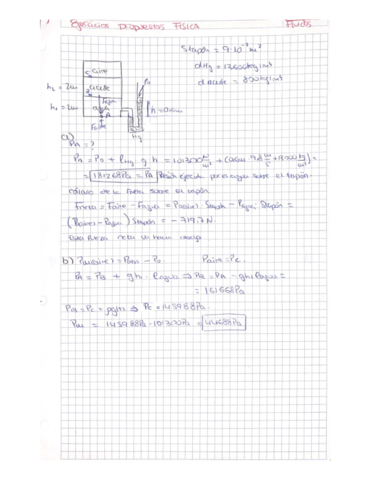 Ejercicios Propuestos Física Fluidos
Stapón = 9·10⁻³ m²
dHg = 13600 kg/m³
daceite = 800 kg/m³
aire
aceite
h₂ = 2m
h₁ = 2m
Tapón
agua
A
Fuerza
P₀
h = 0,6m
Hg
a)
PA = ?
PA = P₀ + ρHg · g · h = 101300 N/m² + (0,6m · 9,8 m/s² · 13600 kg/m³) =
= 181268 Pa = PA Presión ejercida por el agua sobre el tapón
cálculo de la fuerza sobre el tapón
Fuerza = Faire - Fagua = Paire · Stapón - Pagua · Stapón =
= (Paire - Pagua) Stapón = - 719.7 N
Esta fuerza
b) Pman = Pabs - P₀ Paire = PC
PA = PB + g h₁ · ρagua ⇒ PB = PA - g h₁ ρagua =
= 161668 Pa
PB = PC + ρgh₂ ⇒ PC = 145988 Pa
PM = 145988 Pa - 101300 Pa = 44688 Pa